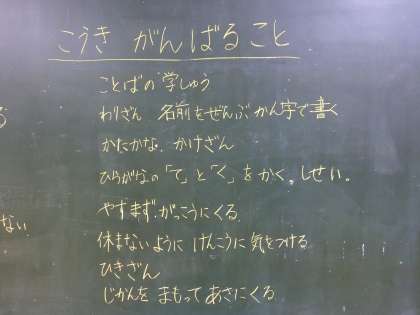 こうき がんばること
ことばの学しゅう
わりざん 名前をぜんぶかん字で書く
かたかな. かけざん
ひらがなの「て」と「く」をかく. しせい。
やすまず. がっこうにくる.
休まないように けんこうに気をつける
ない
ひきざん
じかんを まもって あさにくる